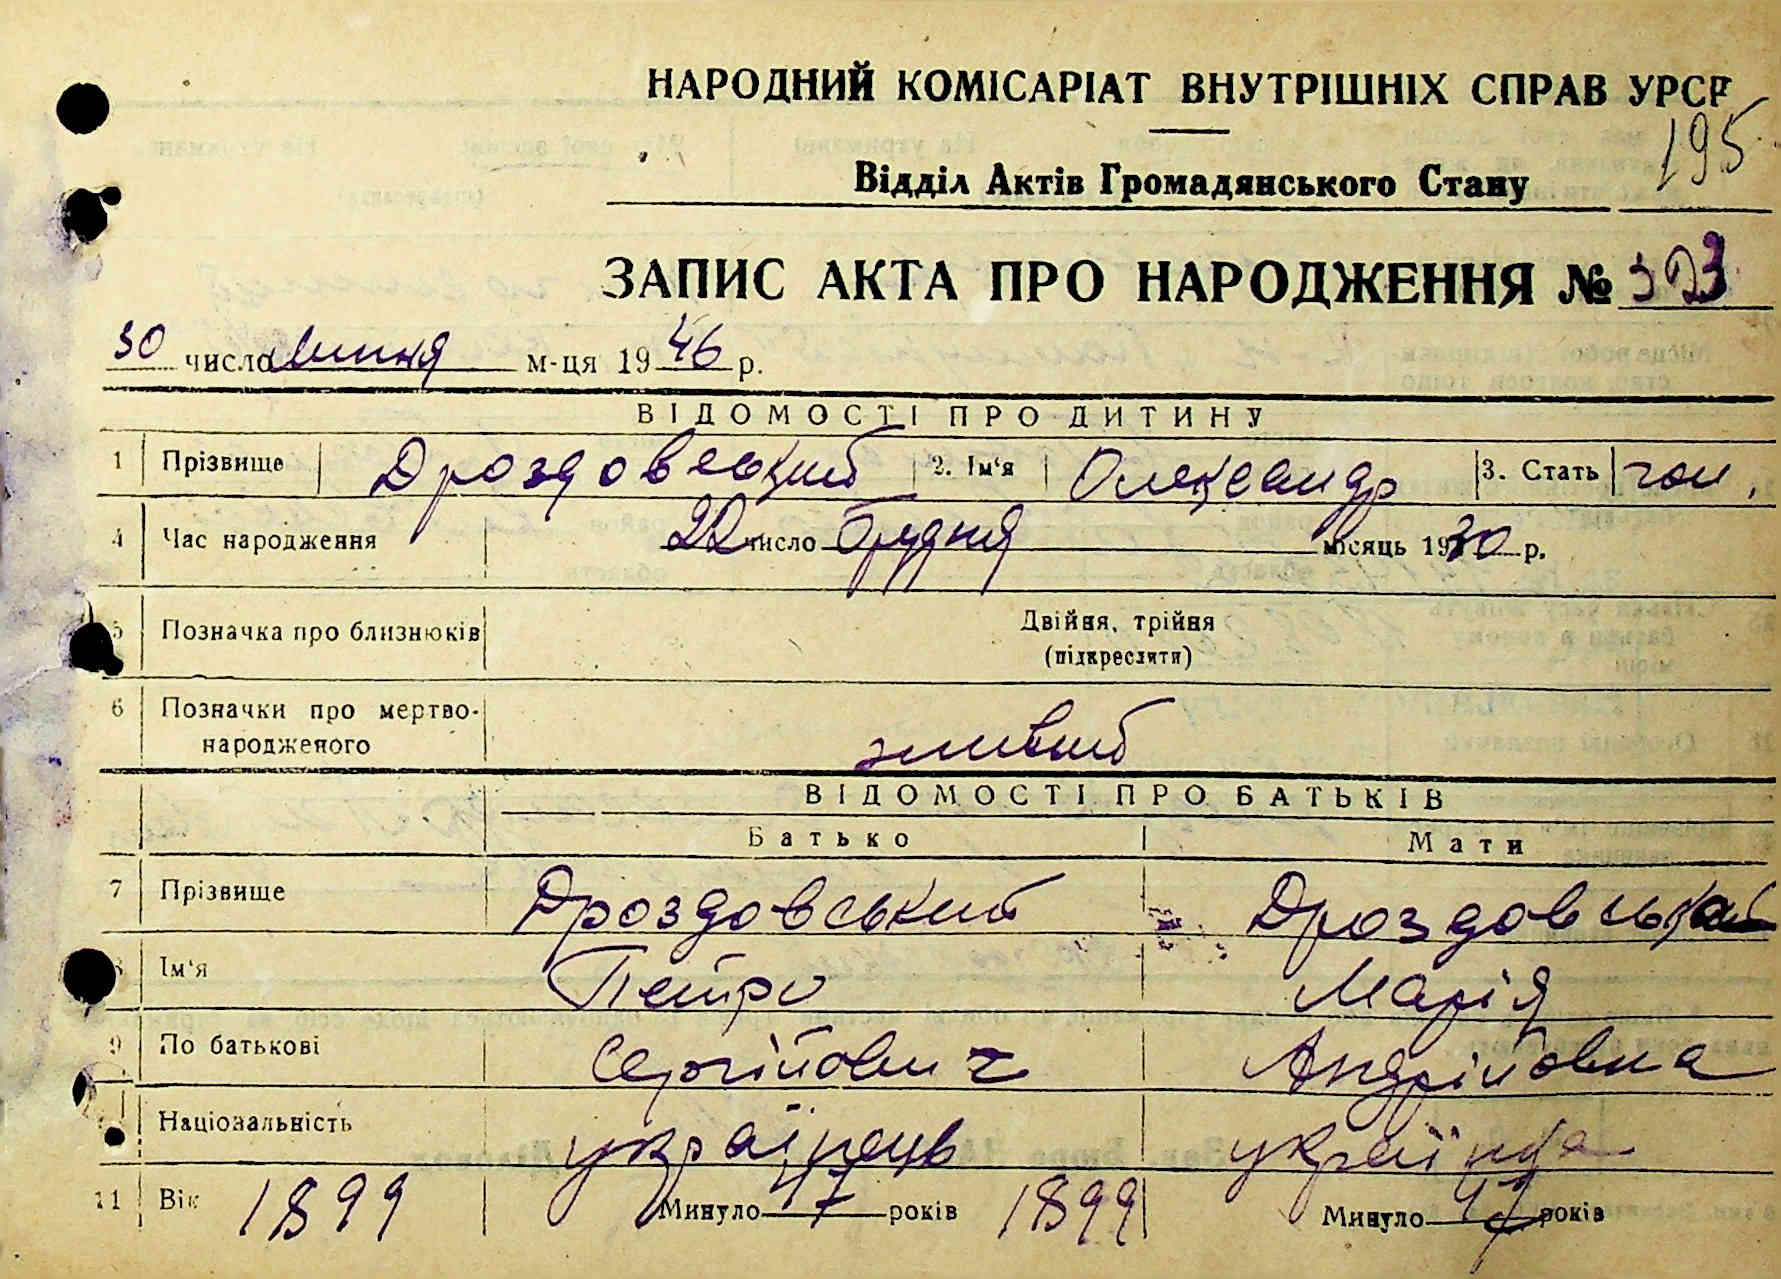 НАРОДНИЙ КОМІСАРІАТ ВНУТРІШНІХ СПРАВ УРСР
195
Відділ Актів Громадянського Стану
ЗАПИС АКТА ПРО НАРОДЖЕННЯ № 393
30 число липня м-ця 1946 р.
ВІДОМОСТІ ПРО ДИТИНУ
1 Прізвище Дроздовський 2. Ім'я Олександр 3. Стать чол.
4 Час народження 22 число грудня місяць 1930 р.
5 Позначка про близнюків Двійня, трійня
(підкреслити)
6 Позначки про мертво-
народженого живий
ВІДОМОСТІ ПРО БАТЬКІВ
Батько Мати
7 Прізвище Дроздовський Дроздовська
8 Ім'я Петро Марія
9 По батькові Сергійович Андріївна
Національність українець українка
11 Вік 1899 Минуло 47 років 1899 Минуло 47 років